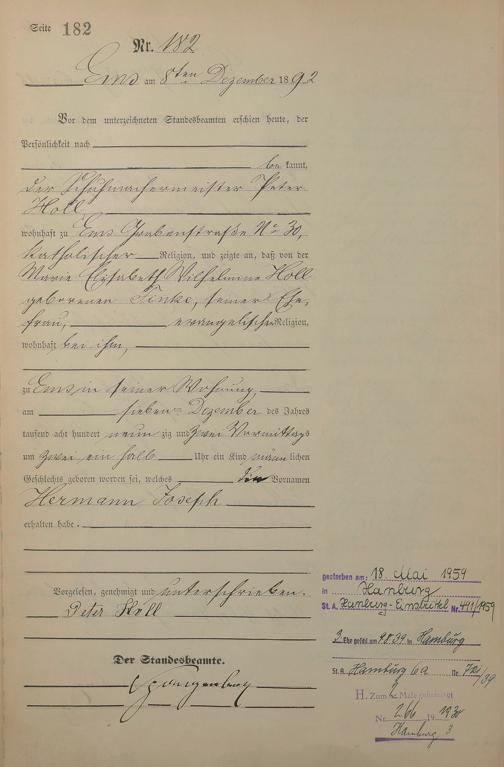 Seite 182
Nr. 182
Ems am 8ten Dezember 1892
Vor dem unterzeichneten Standesbeamten erschien heute, der
Persönlichkeit nach
bekannt,
der Schuhmachermeister Peter
Holl
wohnhaft zu Ems Grabenstraße No 30,
katholischer Religion, und zeigte an, daß von der
Marie Elisabeth Wilhelmine Holl
geborenen Finke, seiner Ehe,
frau, evangelischer Religion,
wohnhaft bei ihm,
zu Ems in seiner Wohnung
am sieben Dezember des Jahres
tausend acht hundert neun zig und zwei Vormittags
um zwei ein halb Uhr ein Kind männlichen
Geschlechts geboren worden sei, welches die Vornamen
Hermann Joseph
erhalten habe.
Vorgelesen, genehmigt und unterschrieben.
Peter Holl
Der Standesbeamte.
gestorben am: 18. Mai 1959
in Hamburg
St. A. Hamburg- Nr. 441/1959
3 Ehe geschl. am 9.8.39 in Hamburg
St. A. Hamburg 6a Nr. /39
H. Zum Male geheiratet
Nr. 266 1930
Hamburg 3